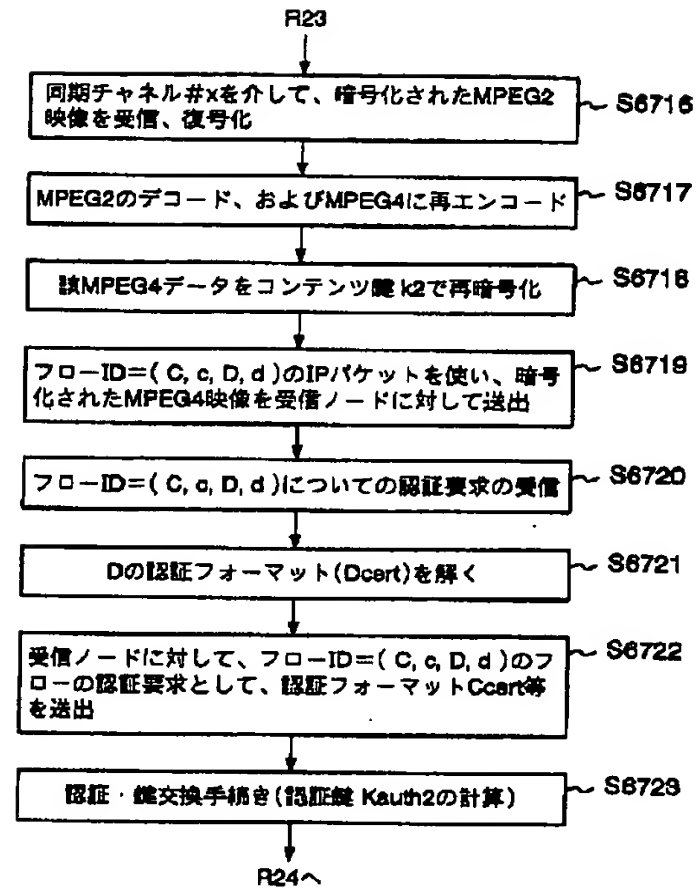 R23
同期チャネル#xを介して、暗号化されたMPEG2
映像を受信、復号化
S6716
MPEG2のデコード、およびMPEG4に再エンコード
S6717
該MPEG4データをコンテンツ鍵 k2で再暗号化
S6718
フローID=( C, c, D, d )のIPパケットを使い、暗号
化されたMPEG4映像を受信ノードに対して送出
S6719
フローID=( C, c, D, d )についての認証要求の受信
S6720
Dの認証フォーマット(Dcert)を解く
S6721
受信ノードに対して、フローID=( C, c, D, d )のフ
ローの認証要求として、認証フォーマットCcert等
を送出
S6722
認証・鍵交換手続き(認証鍵 Kauth2の計算)
S6723
R24へ